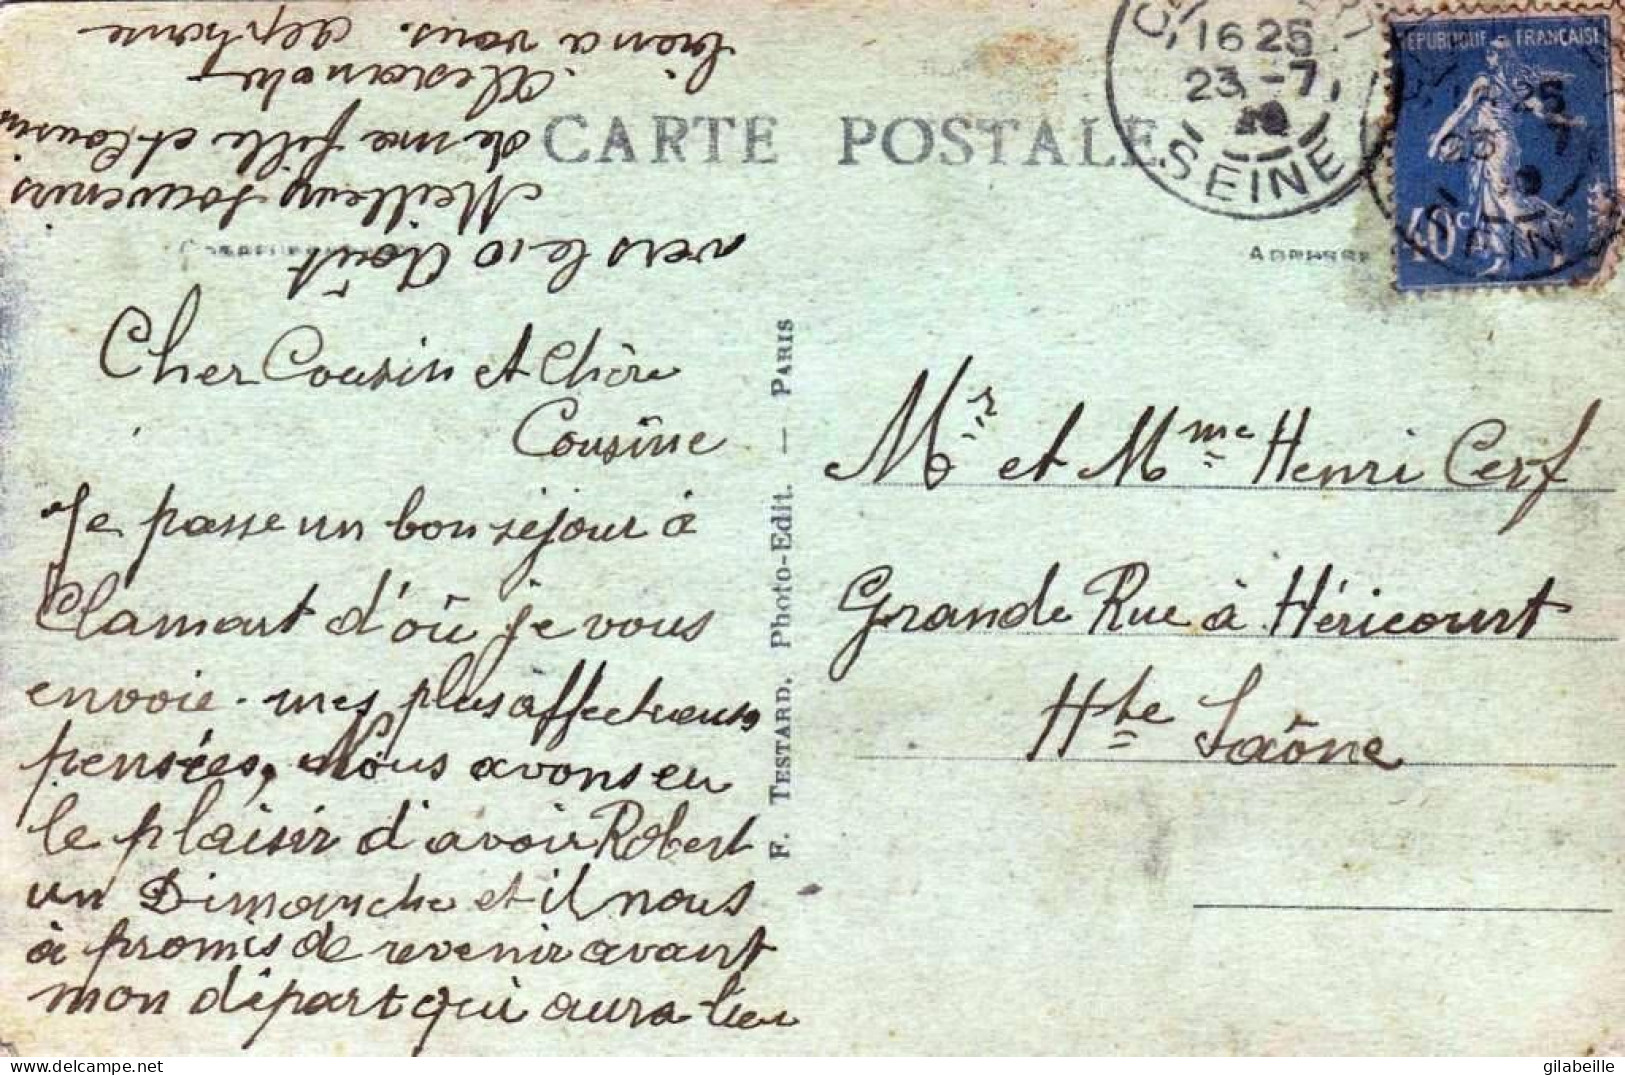 CARTE POSTALE
16 25
23 -7
SEINE
RÉPUBLIQUE FRANÇAISE
40c
ADRESSE
Cher Cousin et Chère
Cousine
Je passe un bon séjour à
Clamart d'où je vous
envoie mes plus affectueuses
pensées, Nous avons eu
le plaisir d'avoir Robert
un Dimanche et il nous
à promis de revenir avant
mon départ qui aura lieu
vers le 10 Août
Meilleurs souvenirs
de ma fille et Cousin
Alexandre
bien a vous.
F. TESTARD. Photo-Edit. — PARIS
Mr et Mme Henri Cerf
Grande Rue à Héricourt
Hte Saône
delcampe.net
gilabeille